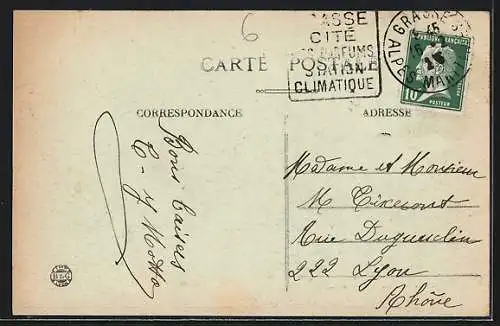 6
GRASSE
CITÉ
DES PARFUMS
STATION
CLIMATIQUE
GRASSE
ALPES MARIT
RÉPUBLIQUE FRANÇAISE
10
POSTES
CARTE POSTALE
CORRESPONDANCE
ADRESSE
Bons baisers
Madame et Monsieur
M.
Rue Duguesclin
222 Lyon
Rhône